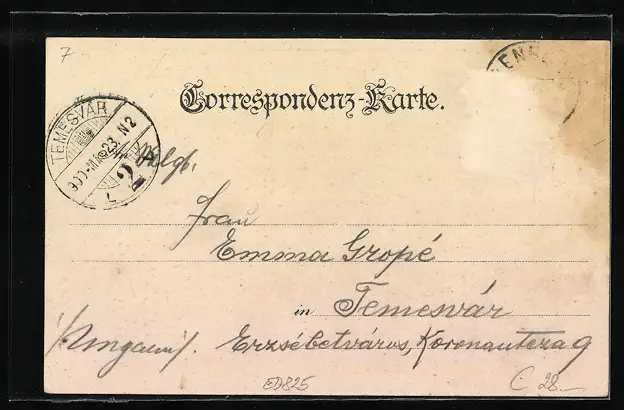 7
Correspondenz-Karte.
TEMESVÁR
900 23 N2
2
L
Wolgb.
Frau
Emma Gropé
in Temesvár
(Ungarn). Erzsébetváros, Koronautcza 9
ED825
28.-